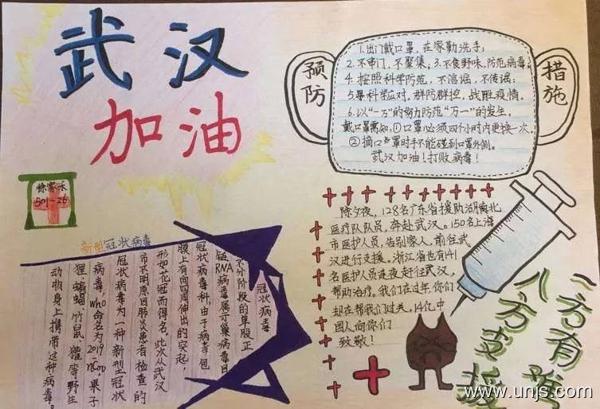 武汉
加油
预防
措施
1.出门戴口罩,在家勤洗手;
2.不串门、不聚集,3.不食野味,防范病毒;
4.按照科学防范,不造谣,不传谣;
5.要科学应对,群防群控,战胜疫情。
6.以"一万"的努力防范"万一"的发生。
戴口罩需知,①口罩必须四小时内更换一次。
②摘口罩时手不能碰到口罩外侧。
武汉加油!打败病毒!
501-26
新型冠状病毒
冠状病毒
不分阶段的单股正
链RNA病毒属于巢病毒目
冠状病毒科,由于病毒包
膜上有向四周伸出的突起,
形如花冠而得名,此次从武汉
市不明原因肺炎患者检查的
冠状病毒为一种新型冠状
病毒,WHO命名为2019-nCoV果子
狸、蝙蝠、竹鼠、獾等野生
动物身上携带这种病毒。
除夕夜,128名广东省援助湖北
医疗队队员,奔赴武汉。150名上海
市医护人员,告别家人,前往武
汉进行支援,浙江省也有141
名医护人员连夜赶往武汉,
帮助治疗。我们在过年,你们
却在帮我们过关,14亿中
国人向你们
致敬!
一方有难
八方支援
www.unjs.com